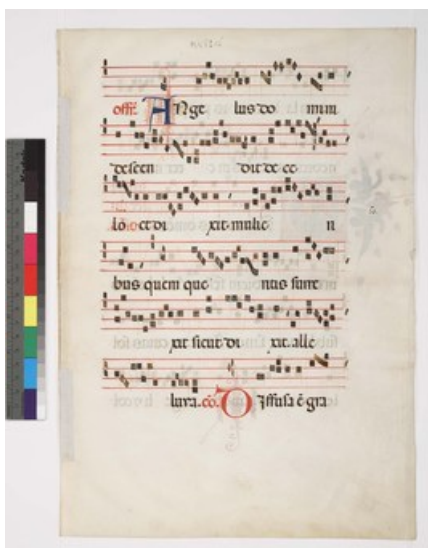 offr̃. ANge lus do mini
descen dit de ce
lo et di xit mulie ri
bus quem que ritis surre
xit sicut di xit alle
luya. cõ. Diffusa ẽ gra